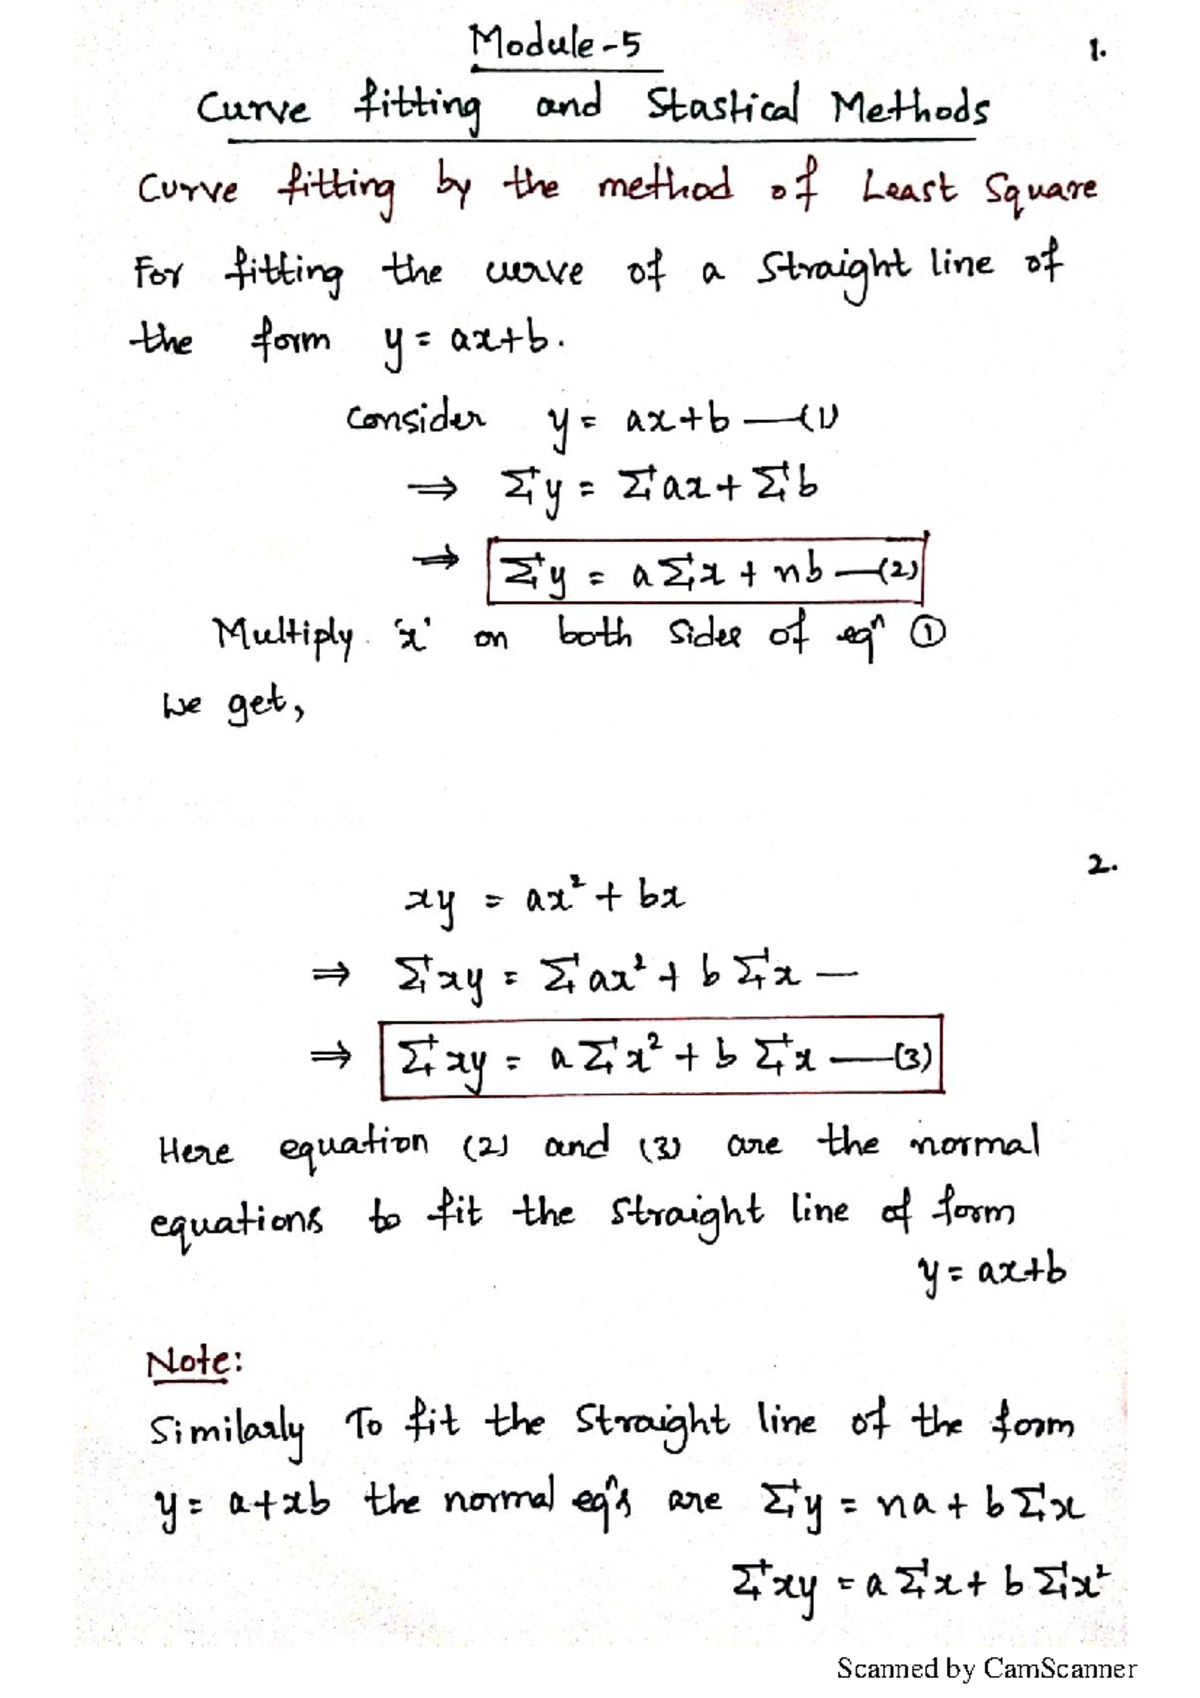 Module-5
1.
Curve fitting and Stastical Methods
Curve fitting by the method of Least Square
For fitting the curve of a Straight line of
the form y = ax+b.
Consider y = ax+b —(1)
⇒ Σy = Σax + Σb
⇒ Σy = aΣx + nb —(2)
Multiply 'x' on both sides of eqⁿ ①
We get,
2.
xy = ax² + bx
⇒ Σxy = Σax² + bΣx —
⇒ Σxy = aΣx² + bΣx —(3)
Here equation (2) and (3) are the normal
equations to fit the straight line of form
y = ax+b
Note:
Similarly To fit the Straight line of the form
y = a+xb the normal eqⁿs are Σy = na + bΣx
Σxy = aΣx + bΣx²
Scanned by CamScanner